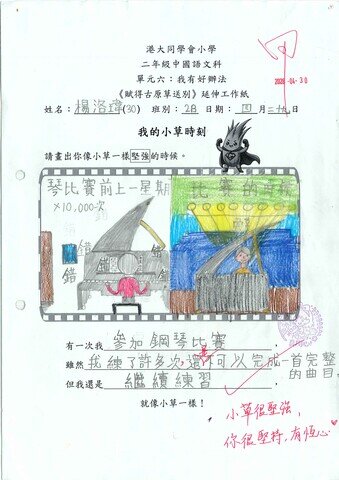 港大同學會小學
二年級中國語文科
單元六：我有好辦法
《賦得古原草送別》延伸工作紙
2026 -04- 30
姓名：楊洛瑋(30) 班別：2B 日期：四月二十九日
我的小草時刻
請畫出你像小草一樣堅強的時候。
琴比賽前上一星期
×10,000次
錯
錯
錯
錯
比賽的時候
有一次我 參加鋼琴比賽，
雖然 我練了許多次還不可以完成一首完整的曲目，
但我還是 繼續練習，
就像小草一樣！
小草很堅強，
你很堅持，有恆心♥